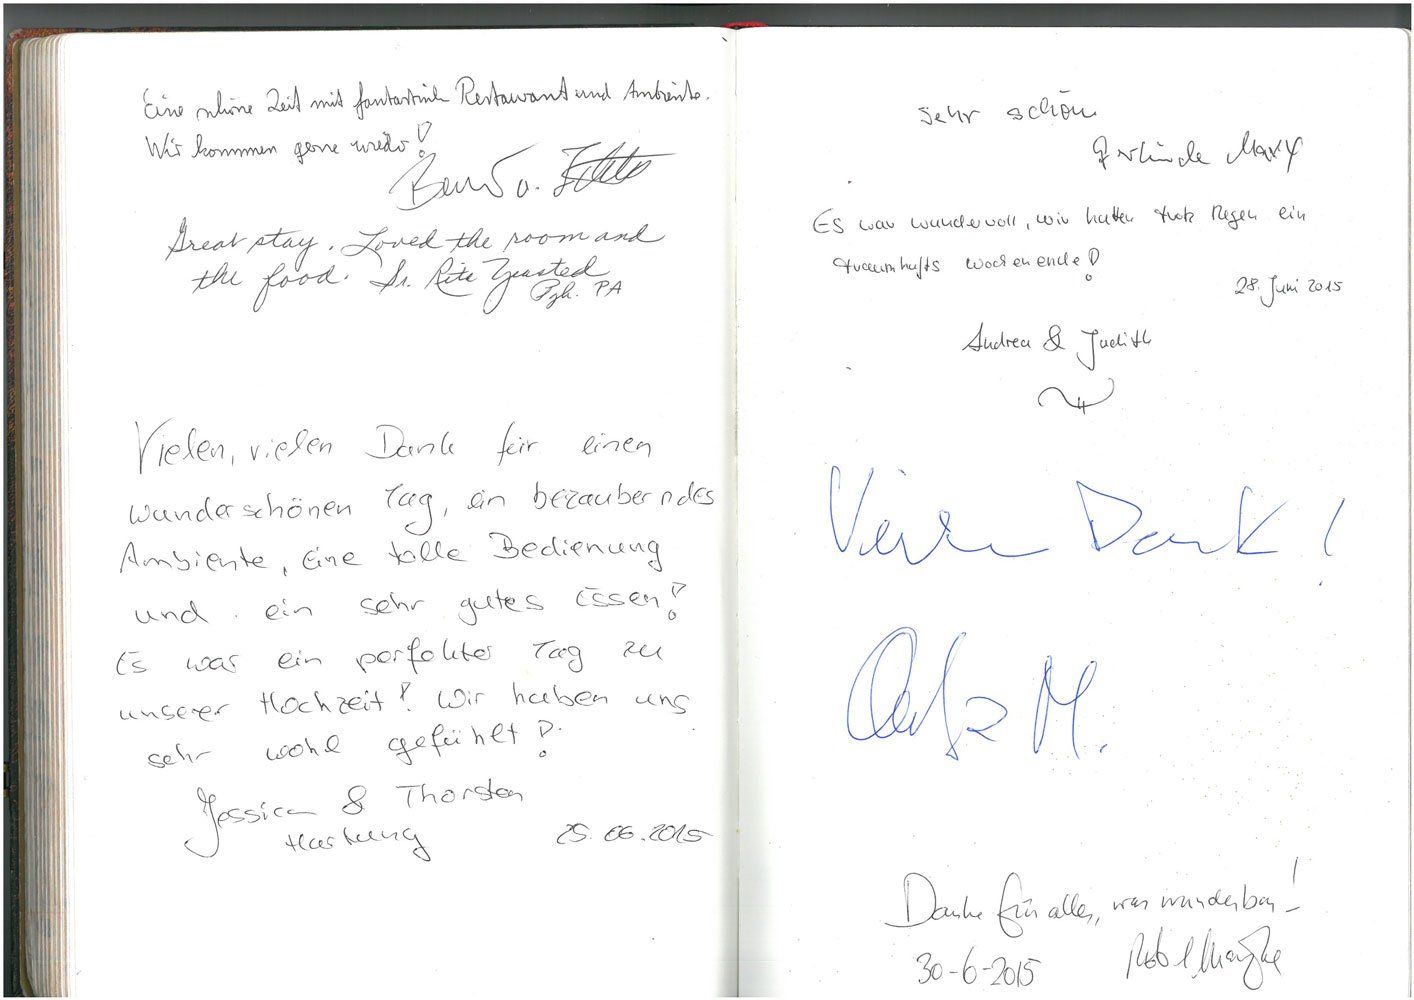 Eine schöne Zeit mit fantastisch Restaurant und Ambiente.
Wir kommen gerne wieder!
Great stay. Loved the room and
the food. Sr. Rita Yeasted
Pgh. PA
Vielen, vielen Dank für einen
wunderschönen Tag, ein bezauberndes
Ambiente, eine tolle Bedienung
und ein sehr gutes Essen!
Es war ein perfekter Tag zu
unserer Hochzeit! Wir haben uns
sehr wohl gefühlt!
Jessica & Thorsten
Hartung 25.06.2015
sehr schön
Gerlinde Marx
Es war wundervoll, wir hatten trotz Regen ein
traumhaftes Wochenende!
28. Juni 2015
Andrea & Judith
Vielen Dank!
M.
Danke für alles, war wunderbar!
30-6-2015